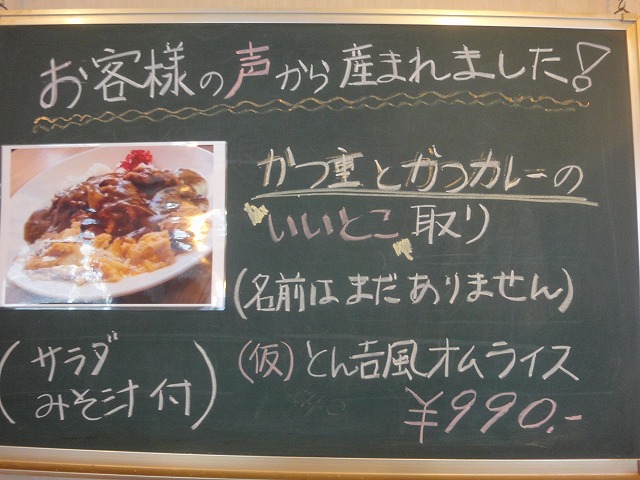 お客様の声から産まれました!
かつ重とかつカレーの
"いいとこ"取り
(名前はまだありません)
(仮)とん吉風オムライス
¥990.-
(サラダ
みそ汁付)